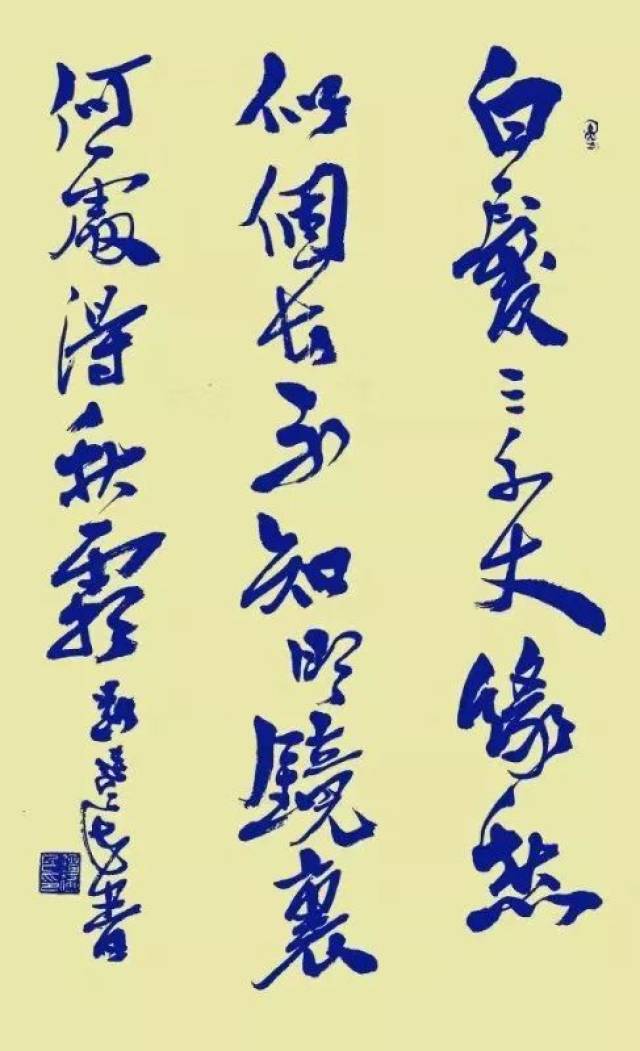 白髮三千丈緣愁
似個长不知明鏡裏
何處得秋霜
書